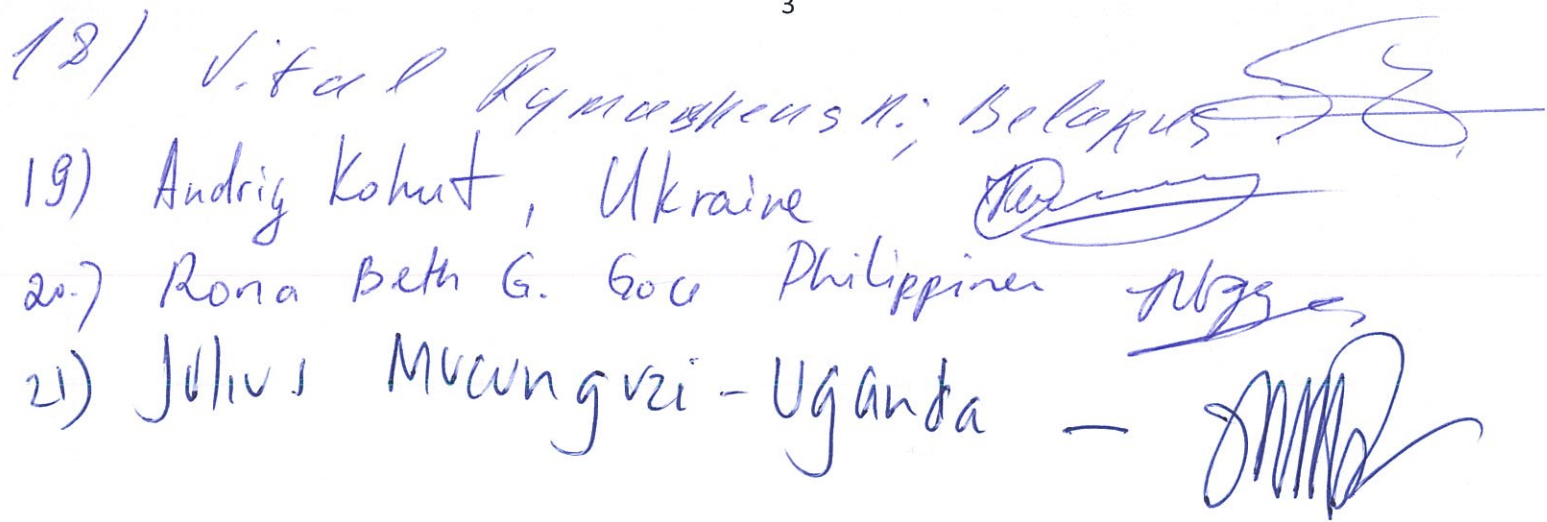 3
18) Vital Rymasheuski, Belarus
19) Andriy Kohut, Ukraine
20.) Rona Beth G. Goce Philippines
21) Julius Mucunguzi - Uganda -